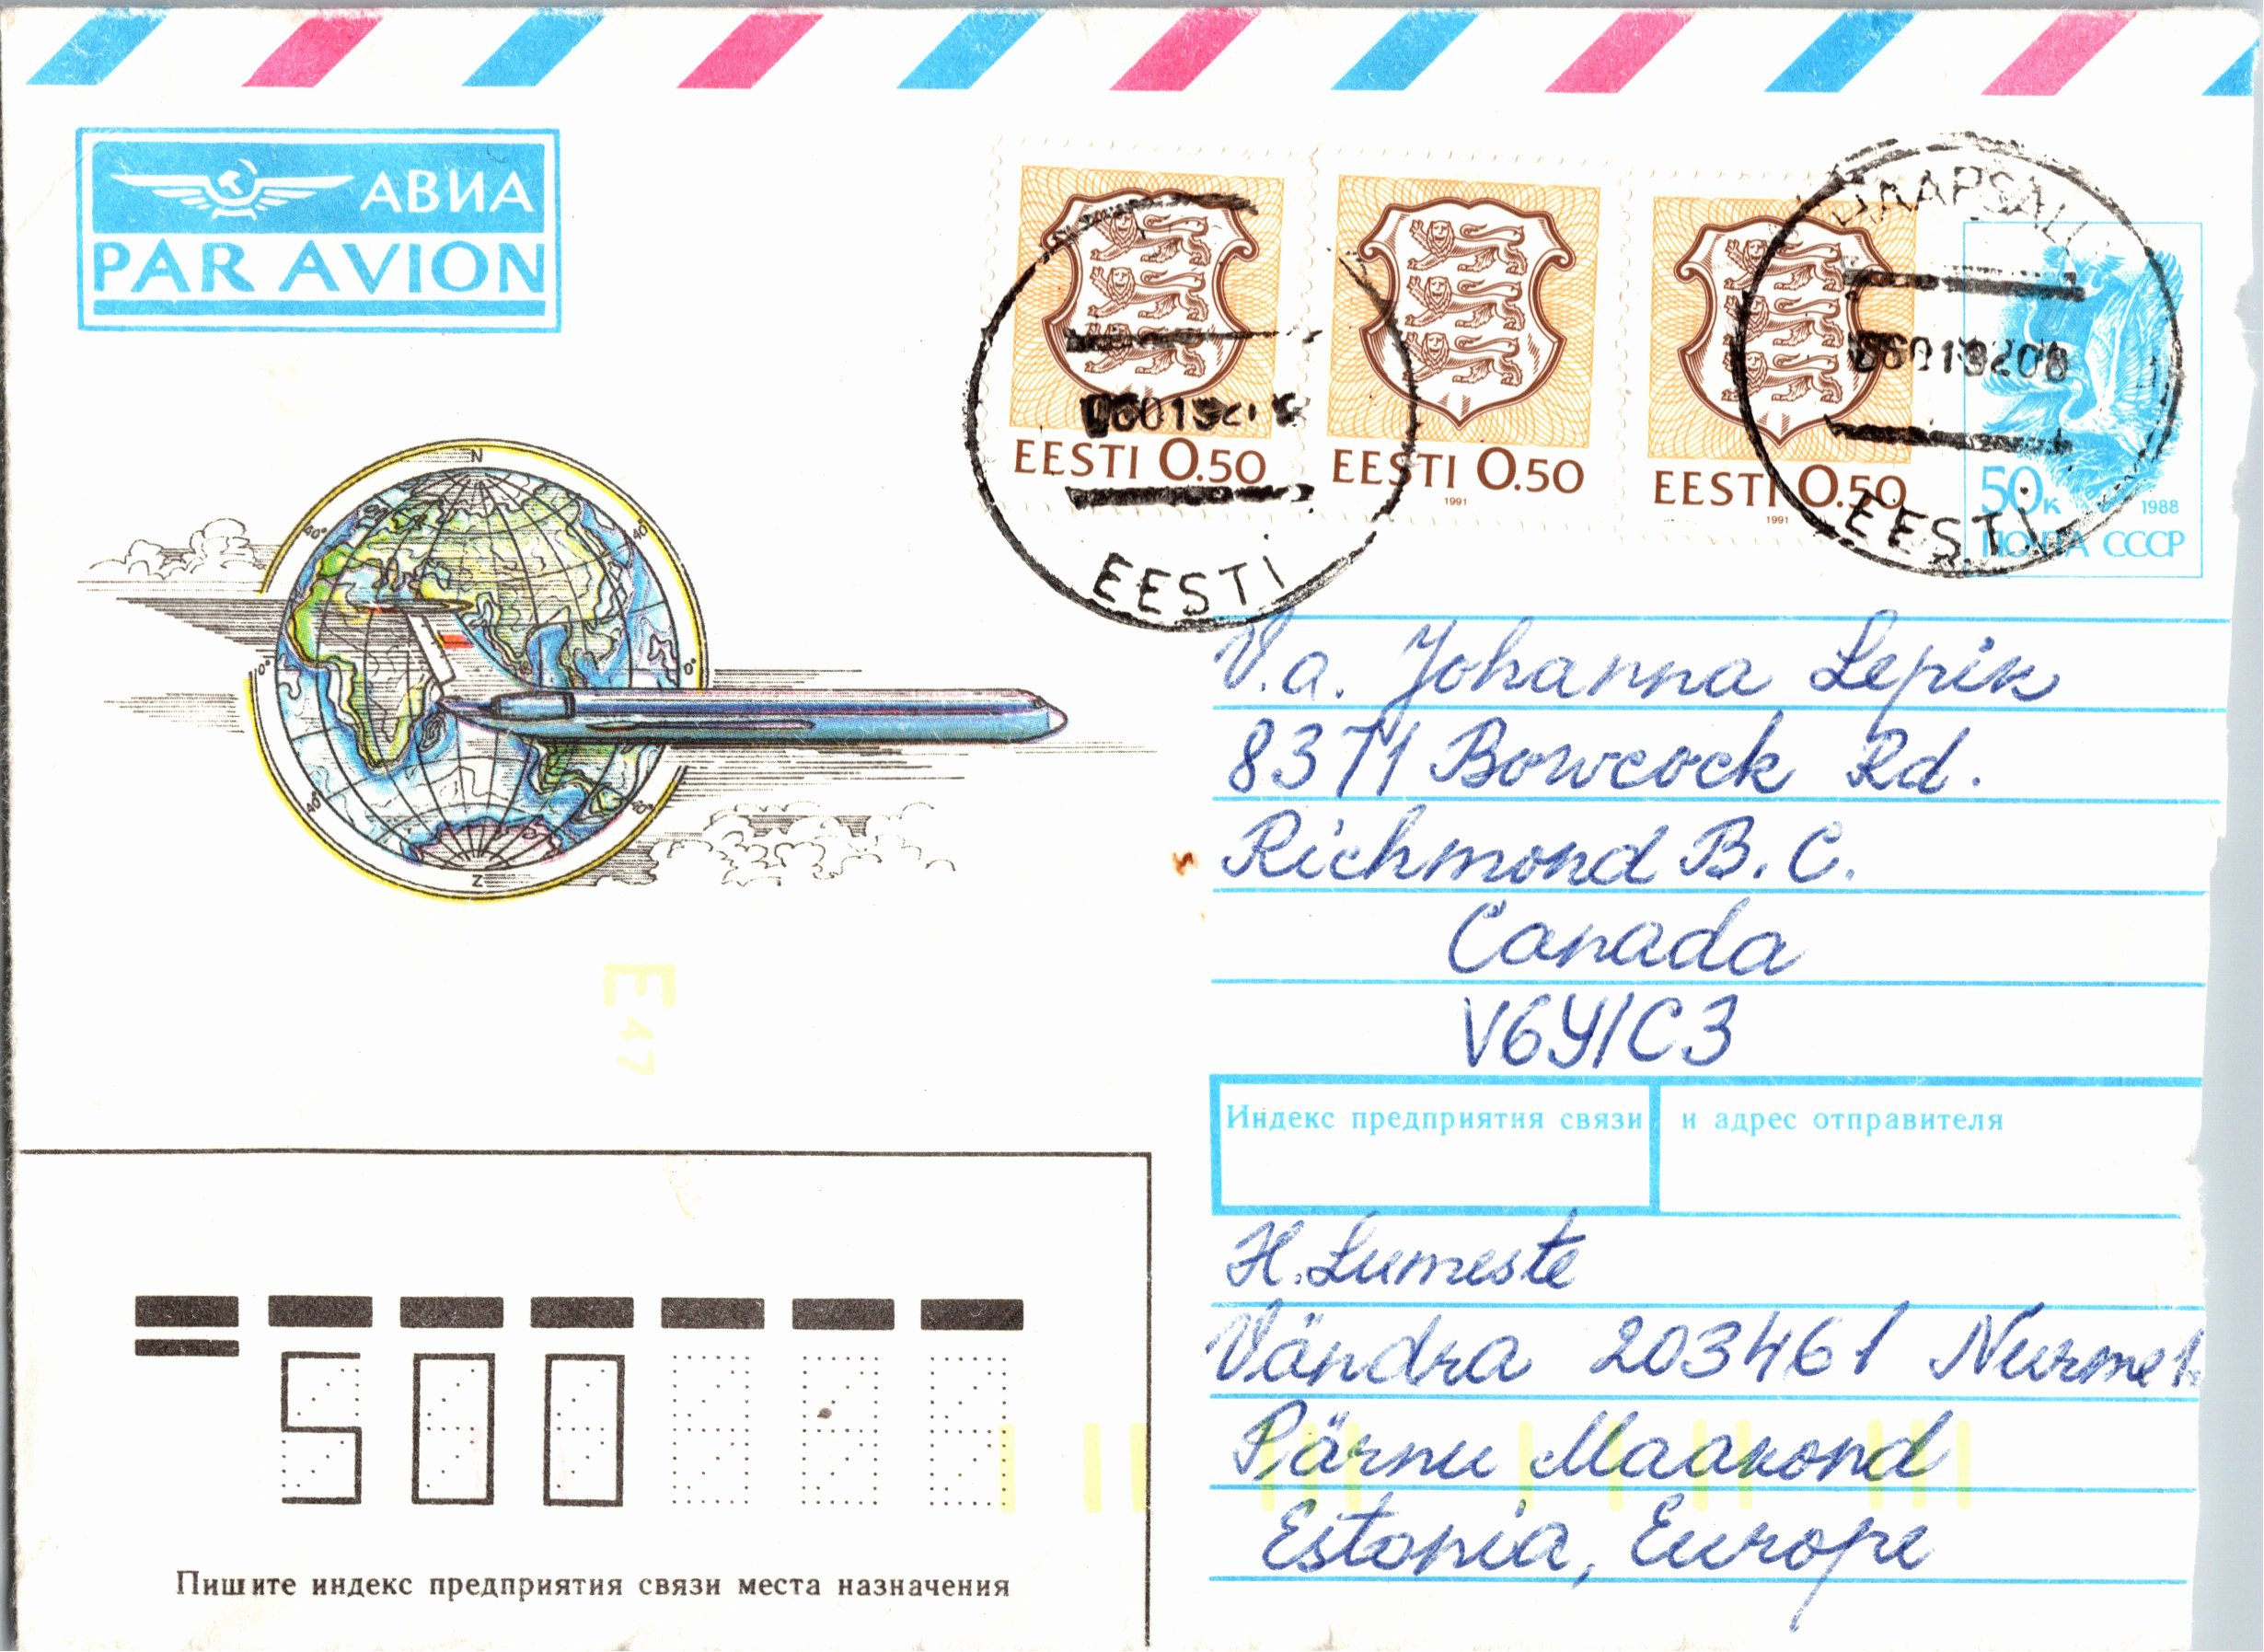 АВИА
PAR AVION
EESTI 0.50
EESTI 0.50
1991
EESTI 0.50
1991
HAAPSALU
EESTI
EESTI
50к
1988
ПОЧТА СССР
N
40°
40°
0°
0°
40°
Z
V.a. Johanna Lepik
8371 Bowcock Rd.
Richmond B.C.
Canada
V6Y1C3
E
47
Индекс предприятия связи и адрес отправителя
H. Lumeste
Vändra 203461 Nurme 1.
Pärnu Maakond
Estonia, Europe
500
Пишите индекс предприятия связи места назначения